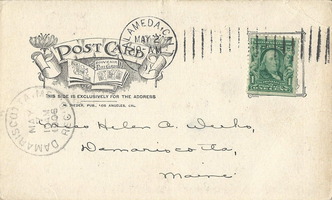 ALAMEDA, CAL.
MAY
POST CARD
THIS SIDE IS EXCLUSIVELY FOR THE ADDRESS
M. RIEDER, PUB., LOS ANGELES, CAL.
DAMARISCOTTA
REC'D
Miss Helen A. Weeks,
Damariscotta,
Maine